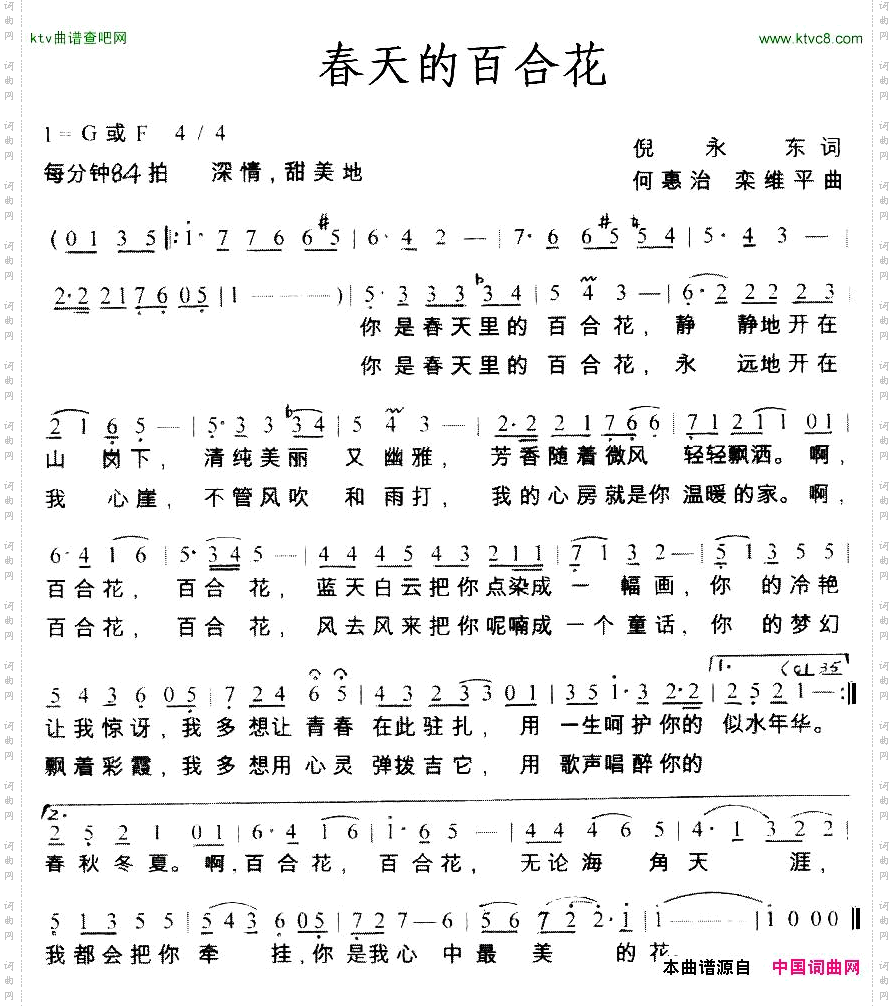 ktv曲谱查吧网
www.ktvc8.com
春天的百合花
1=G或F 4/4
倪永东词
每分钟84拍 深情,甜美地
何惠治 栾维平曲
(0 1 3 5 |: 1· 7 7 6 6 #5 | 6· 4 2 — | 7· 6 6 #5 ♮5 4 | 5· 4 3 — |
2·2 2 1 7 6 0 5 | 1 — — — ) | 5· 3 3 3 b3 4 | 5 4 3 — | 6· 2 2 2 2 3 |
你是春天里的 百合花, 静 静地开在
你是春天里的 百合花, 永 远地开在
2 1 6 5 — | 5· 3 3 b3 4 | 5 4 3 — | 2·2 2 1 7 6 6 | 7 1 2 1 1 0 1 |
山 岗下, 清纯美丽 又 幽雅, 芳香随着微风 轻轻飘洒。啊,
我 心崖, 不管风吹 和 雨打, 我的心房就是你 温暖的家。啊,
6· 4 1 6 | 5· 3 4 5 — | 4 4 4 5 4 3 2 1 1 | 7 1 3 2 — | 5 1 3 5 5 |
百合花, 百合 花, 蓝天白云把你点染成 一 幅画, 你 的冷艳
百合花, 百合 花, 风去风来把你呢喃成 一个 童话, 你 的梦幻
1. (0 1 3 5
5 4 3 6 0 5 | 7 2 4 6 5 | 4 3 2 3 3 0 1 | 3 5 1· 3 2·2 | 2 5 2 1 — :|
让我惊讶, 我多想让 青春 在此驻扎, 用 一生呵护你的 似水年华。
飘着彩霞, 我多想用 心灵 弹拨吉它, 用 歌声唱醉你的
2.
2 5 2 1 0 1 | 6· 4 1 6 | 1· 6 5 — | 4 4 4 6 5 | 4· 1 3 2 2 |
春秋冬夏。啊,百合花, 百合花, 无论海 角天 涯,
5 1 3 5 5 | 5 4 5 4 3 0 5 | 7 2 7 — 6 | 5 6 7 2 2· 1 | 1 — — — | 1 0 0 0 ‖
我都会把你 牵 挂,你是我心 中最 美 的花。
本曲谱源自 中国词曲网